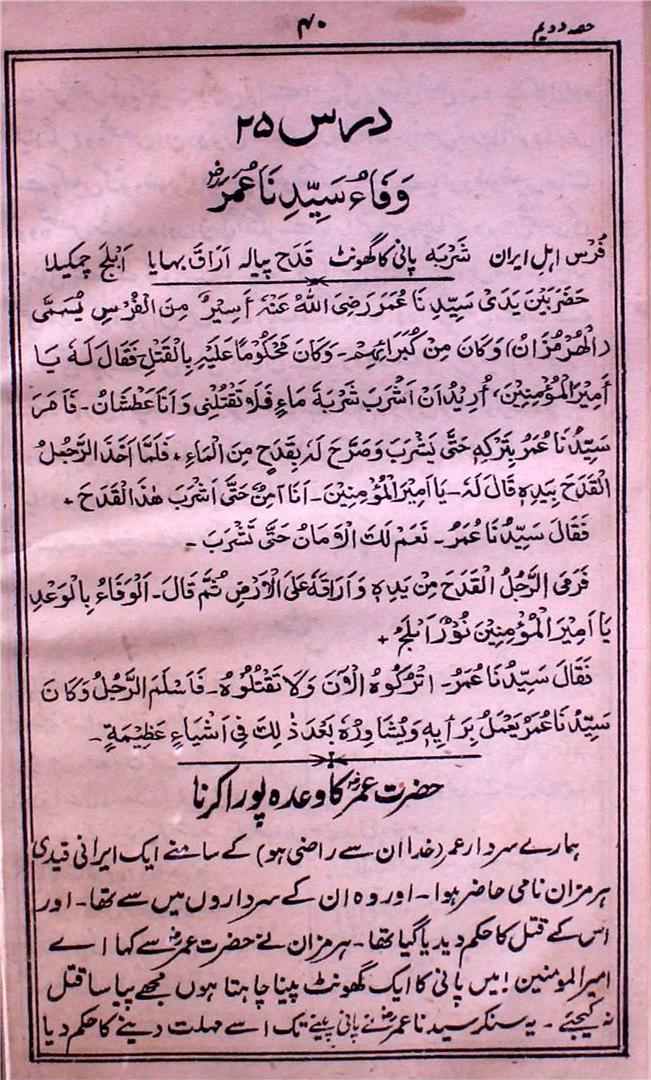 حصہ دویم
۴۰
درس ۲۵
وَفَاءُ سَیِّدِنَا عُمَرَؓ
فُرْس اہلِ ایران شَرْبَہ پانی کا گھونٹ قَدَح پیالہ اَرَاقَ بہایا اَبْلَج چمکیلا
حَضَرَ بَیْنَ یَدَیْ سَیِّدِنَا عُمَرَ رَضِیَ اللهُ عَنْہُ أَسِیْرٌ مِنَ الْفُرْسِ یُسَمّٰی
(الْہُرْمُزَانُ) وَکَانَ مِنْ کُبَرَائِہِمْ۔ وَکَانَ مَحْکُوْمًا عَلَیْہِ بِالْقَتْلِ فَقَالَ لَہٗ یَا
أَمِیْرَ الْمُؤْمِنِیْنَ، أُرِیْدُ اَنْ اَشْرَبَ شَرْبَۃَ مَاءٍ فَلَا تَقْتُلْنِیْ وَاَنَا عَطْشَانُ۔ فَاَمَرَ
سَیِّدُنَا عُمَرُ بِتَرْکِہٖ حَتّٰی یَشْرَبَ وَصَرَّحَ لَہٗ بِقَدَحٍ مِنَ الْمَاءِ، فَلَمَّا اَخَذَ الرَّجُلُ
الْقَدَحَ بِیَدِہٖ قَالَ لَہٗ۔ یَا اَمِیْرَ الْمُؤْمِنِیْنَ۔ اَنَا اٰمِنٌ حَتّٰی اَشْرَبَ ھٰذَا الْقَدَحَ ٭
فَقَالَ سَیِّدُنَا عُمَرُ۔ نَعَمْ لَکَ الْاَمَانُ حَتّٰی تَشْرَبَ۔
فَرَمَی الرَّجُلُ الْقَدَحَ مِنْ یَدِہٖ وَاَرَاقَہٗ عَلَی الْاَرْضِ ثُمَّ قَالَ۔ اَلْوَفَاءُ بِالْوَعْدِ
یَا اَمِیْرَ الْمُؤْمِنِیْنَ نُوْرٌ اَبْلَجُ ٭
فَقَالَ سَیِّدُنَا عُمَرُ۔ اُتْرُکُوْہُ الْاٰنَ وَلَا تَقْتُلُوْہُ۔ فَاَسْلَمَ الرَّجُلُ وَکَانَ
سَیِّدُنَا عُمَرُ یَعْمَلُ بِرَأیِہٖ وَیُشَاوِرُہٗ بَعْدَ ذٰلِکَ فِیْ اَشْیَاءٍ عَظِیْمَۃٍ۔
حضرت عمرؓ کا وعدہ پورا کرنا
ہمارے سردار عمر (خدا ان سے راضی ہو) کے سامنے ایک ایرانی قیدی
ہرمزان نامی حاضر ہوا۔ اور وہ ان کے سرداروں میں سے تھا۔ اور
اس کے قتل کا حکم دیدیا گیا تھا۔ ہرمزان نے حضرت عمرؓ سے کہا اے
امیر المومنین! میں پانی کا ایک گھونٹ پینا چاہتا ہوں مجھے پیاسا قتل
نہ کیجئے۔ یہ سنکر سیدنا عمرؓ نے پانی پینے تک اسے مہلت دینے کا حکم دیا